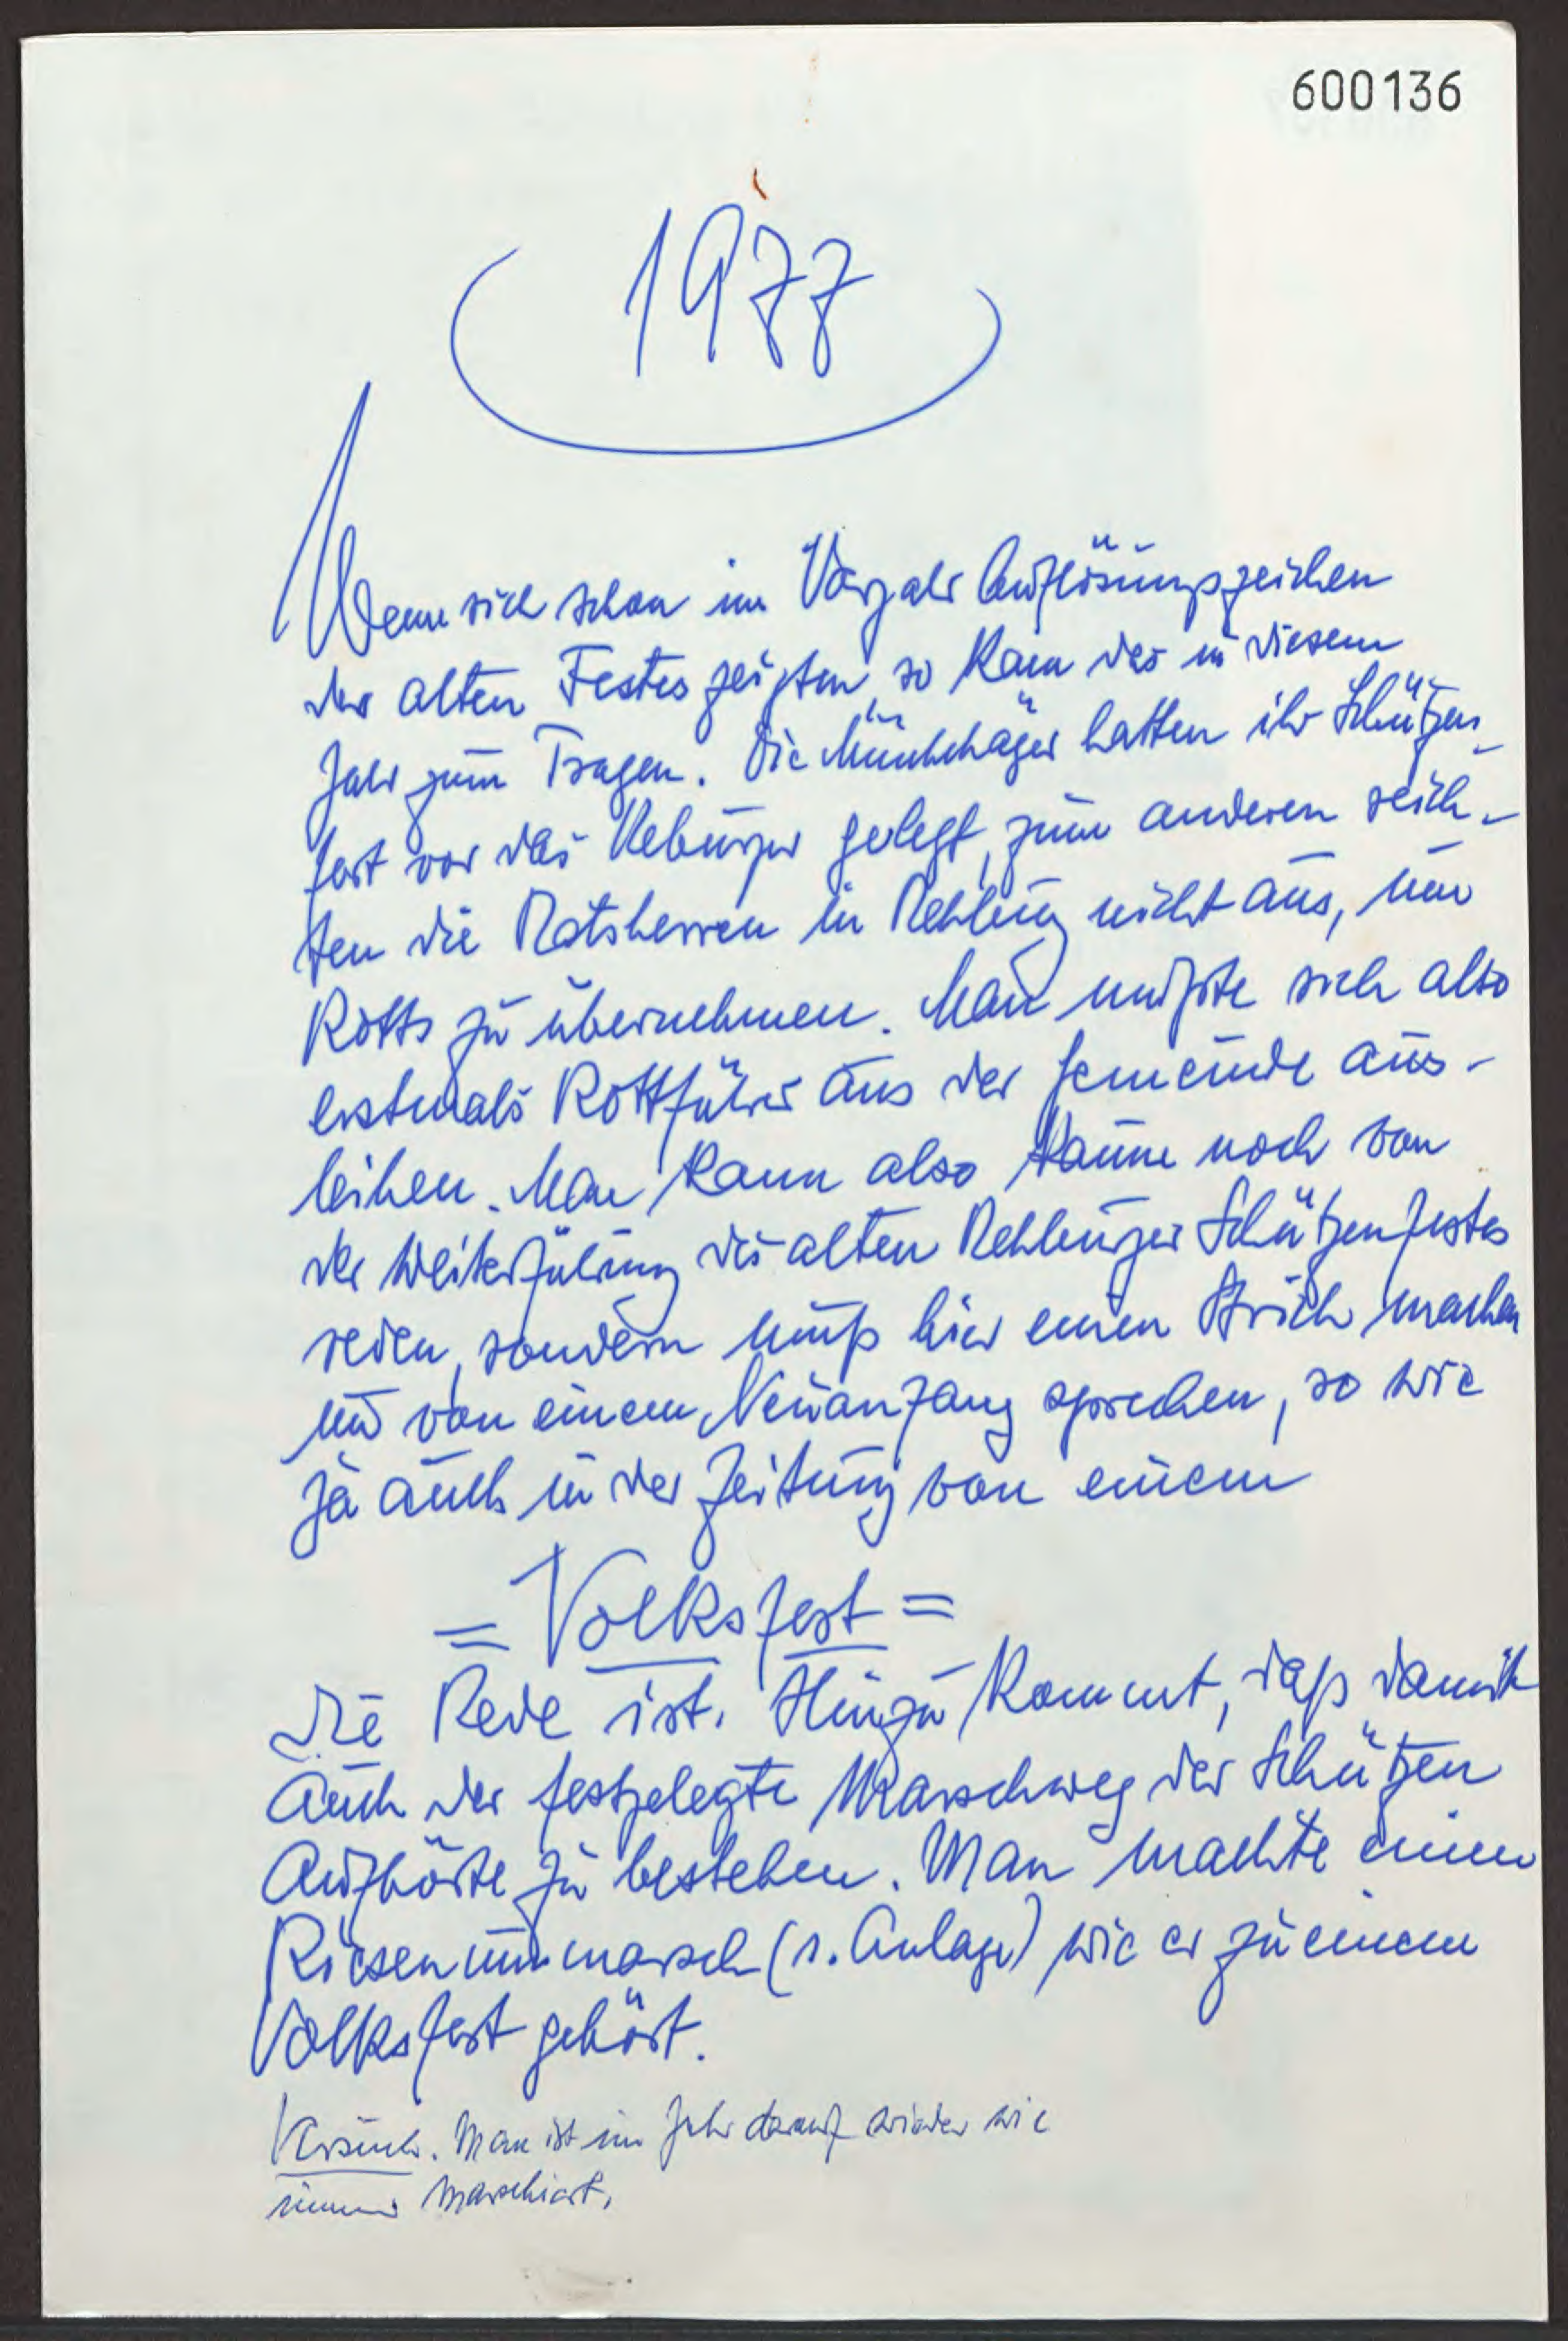 600136
1977
Wenn sich schon im Vorjahr Auflösungszeichen
des alten Festes zeigten, so kam das in diesem
Jahr zum Tragen. Die Münchehäger hatten ihr Schützen-
fest vor das Rehburger gelegt, zum anderen reich-
ten die Ratsherren in Rehburg nicht aus, um
Rotts zu übernehmen. Man mußte sich also
erstmals Rottführer aus der Gemeinde aus-
leihen. Man kann also kaum noch von
der Weiterführung des alten Rehburger Schützenfestes
reden, sondern muß hier einen Strich machen
und von einem Neuanfang sprechen, so wie
ja auch in der Zeitung von einem
= Volksfest =
die Rede ist. Hinzu kommt, daß damit
auch der festgelegte Marschweg der Schützen
aufhörte zu bestehen. Man machte einen
Riesenummarsch (s. Anlage) wie er zu einem
Volksfest gehört.
Versuch. Man ist im Jahr darauf wieder wie
immer marschiert.